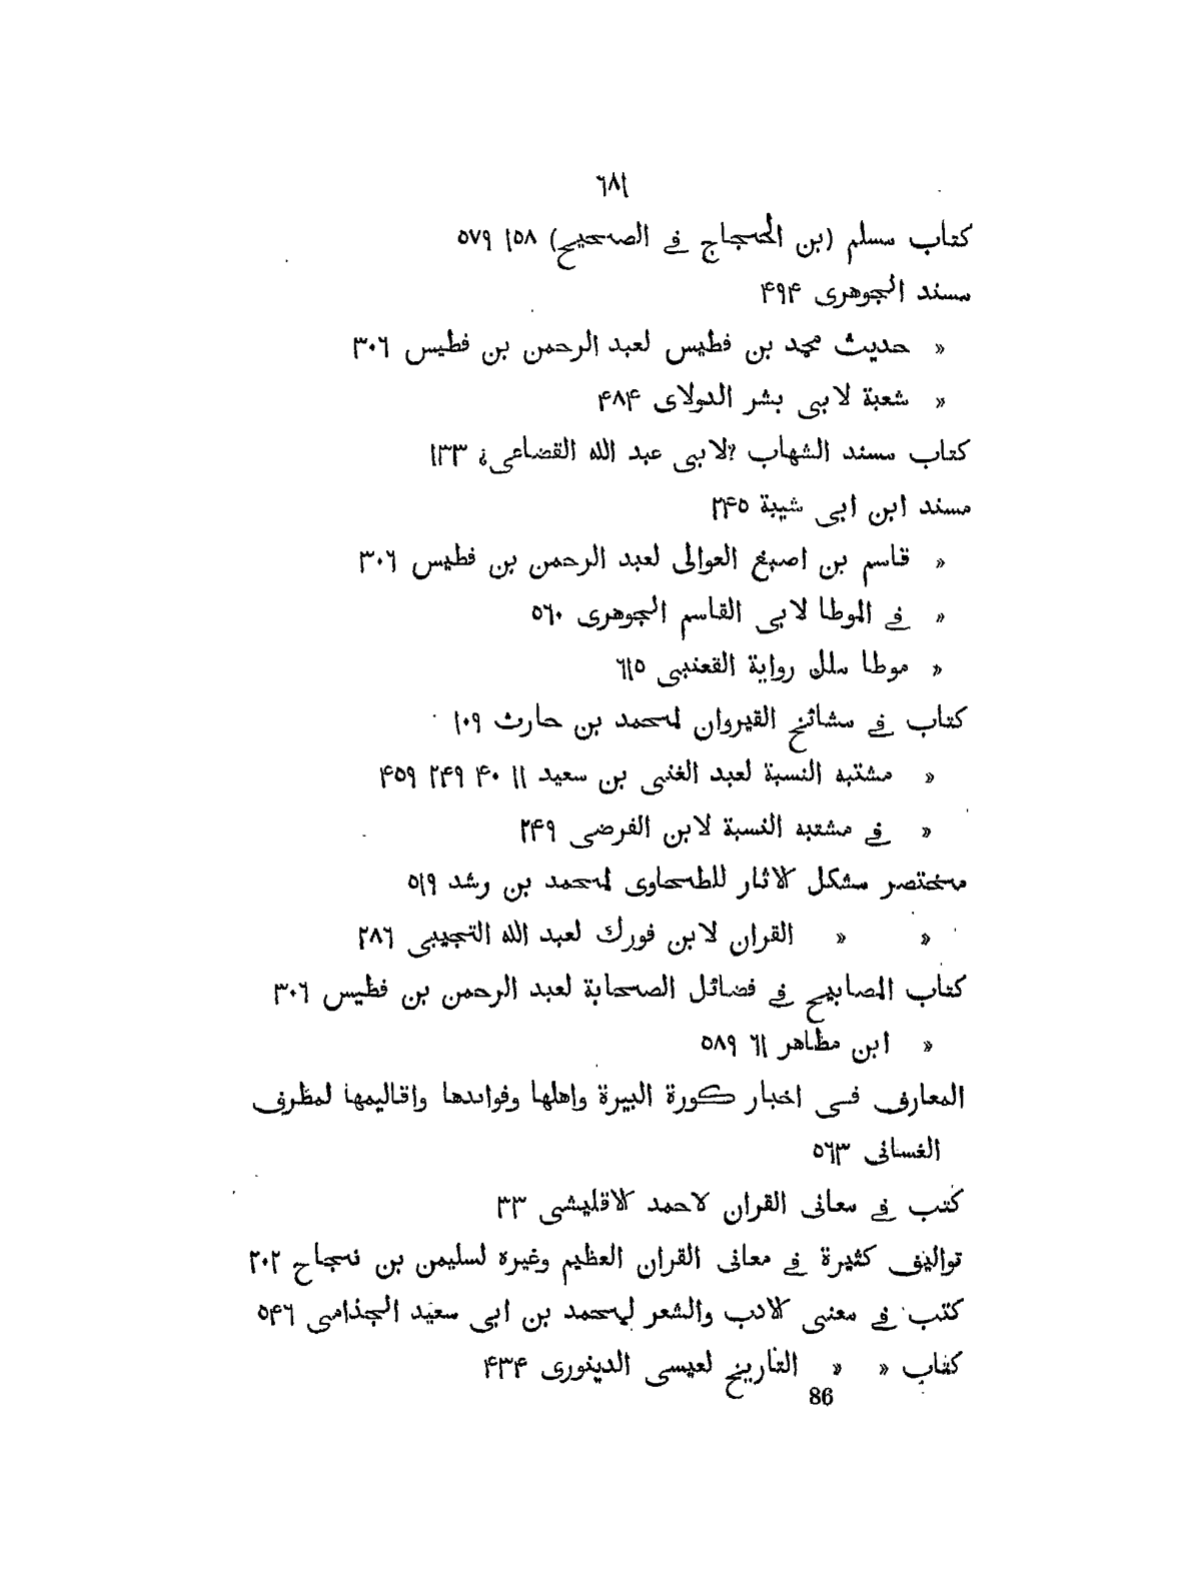 ٦٨١
كتاب مسلم (بن الحجاج في الصحيح) ١٥٨ ٥٧٩
مسند الجوهرى ۴٩۴
« حديث محمد بن فطيس لعبد الرحمن بن فطيس ٣٠٦
« شعبة لابى بشر الدولاى ۴٨۴
كتاب مسند الشهاب ?لابى عبد الله القضاعى¿ ١٣٣
مسند ابن ابى شيبة ٢۴٥
« قاسم بن اصبغ العوالى لعبد الرحمن بن فطيس ٣٠٦
« في الموطا لابى القاسم الجوهرى ٥٦٠
« موطا ملك رواية القعنبى ٦١٥
كتاب في مشائخ القيروان لمحمد بن حارث ١٠٩
« مشتبه النسبة لعبد الغنى بن سعيد ١١ ۴٠ ٢۴٩ ۴٥٩
« في مشتبه النسبة لابن الفرضى ٢۴٩
مختصر مشكل الاثار للطحاوى لمحمد بن رشد ٥١٩
« « القران لابن فورك لعبد الله التجيبى ٢٨٦
كتاب المصابيح في فضائل الصحابة لعبد الرحمن بن فطيس ٣٠٦
« ابن مظاهر ٦١ ٥٨٩
المعارف فى اخبار كورة البيرة واهلها وفوائدها واقاليمها لمطرف
الغسانى ٥٦٣
كتب في معانى القران لاحمد الاقليشى ٣٣
تواليف كثيرة في معانى القران العظيم وغيره لسليمن بن نجاح ٢٠٢
كتب في معنى الادب والشعر لمحمد بن ابى سعيد الجذامى ٥۴٦
كتاب « « التاريخ لعيسى الدينورى ۴٣۴
86